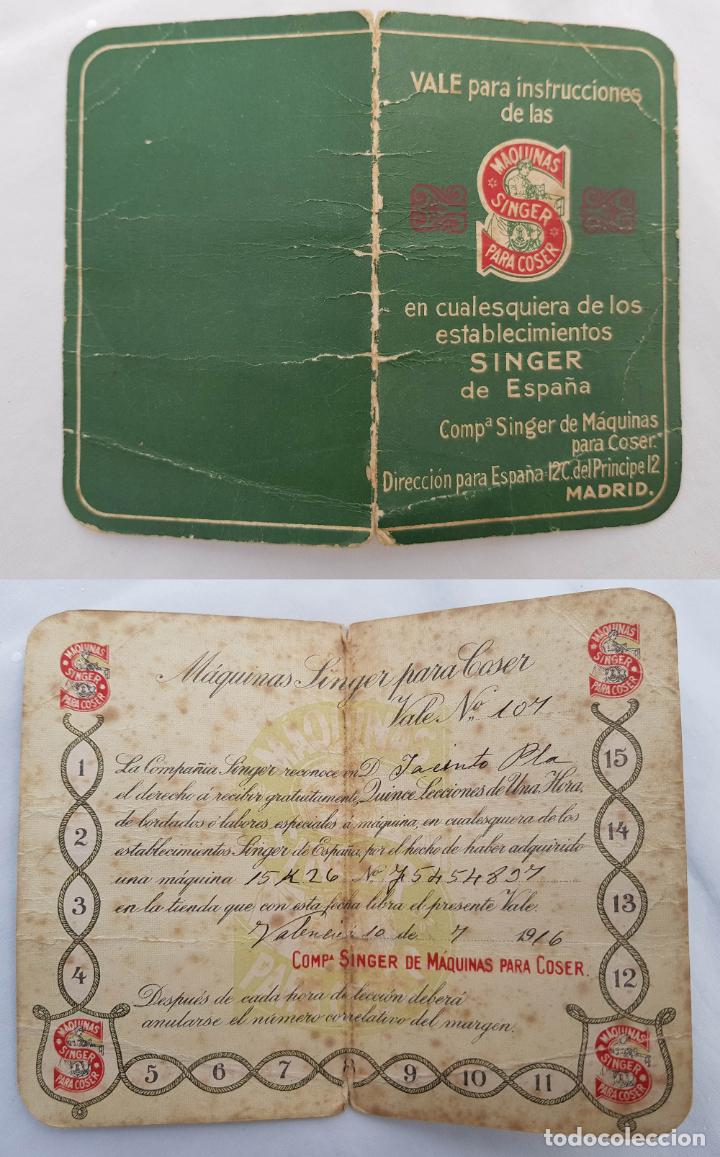 VALE para instrucciones
de las
MAQUINAS
SINGER
PARA COSER
en cualesquiera de los
establecimientos
SINGER
de España
Compª Singer de Máquinas
para Coser.
Dirección para España 12C. del Principe 12
MADRID.
MAQUINAS
SINGER
PARA COSER
MAQUINAS
SINGER
PARA COSER
Máquinas Singer para Coser
Vale No. 107
La Compañia Singer reconoce en D. Jacinto Pla
el derecho á recibir gratuitamente, Quince Lecciones de Una Hora,
de bordados ó labores especiales á máquina, en cualesquiera de los
establecimientos Singer de España, por el hecho de haber adquirido
una máquina 15K26 No F5454897
en la tienda que con esta fecha libra el presente Vale.
Valencia 10 de 7 1916
COMPª SINGER DE MÁQUINAS PARA COSER.
Después de cada hora de lección deberá
anularse el número correlativo del margen.
1
2
3
4
5
6
7
8
9
10
11
12
13
14
15
MAQUINAS
SINGER
PARA COSER
MAQUINAS
SINGER
PARA COSER
MAQUINAS
PARA
todocoleccion.net